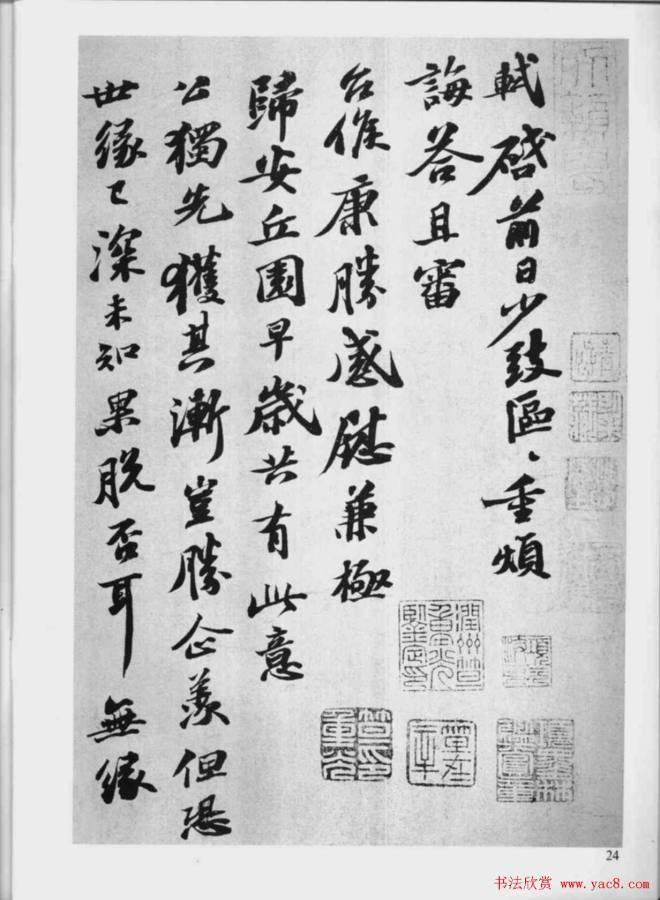 軾啓前日少致區〻重煩
誨荅且審
台候康勝感慰兼極
歸安丘園早歲共有此意
公獨先獲其漸豈勝企羨但恐
世緣已深未知果脫否耳無緣
24
书法欣赏 www.yac8.com